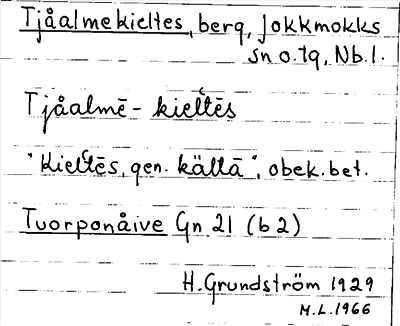 Tjåalmekieltes, berg, Jokkmokks
sn o. tg, Nb.l.
Tjåalmē - kieltēs
"Kieltēs, gen. källā", obek. bet.
Tuorponåive Gn 21 (b2)
H. Grundström 1929
M.L. 1966